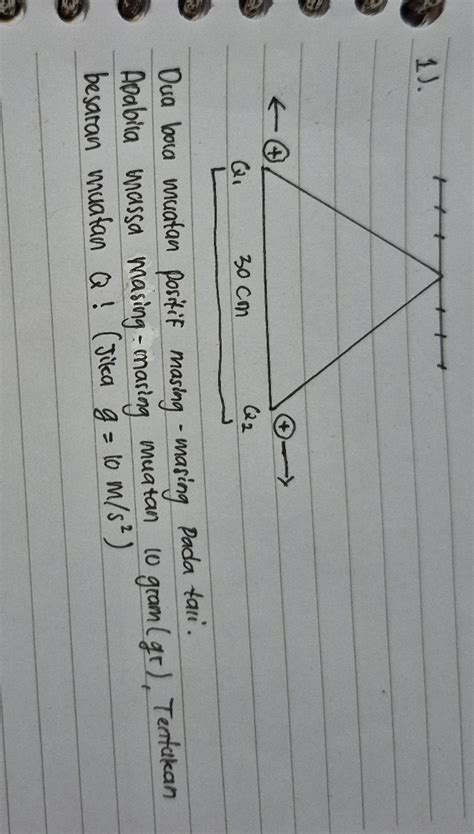 1).
+ +
Q1 30 cm Q2
Dua bola muatan positif masing-masing pada tali.
Apabila massa masing-masing muatan 10 gram (gr), Tentukan
besaran muatan Q! (Jika g = 10 m/s²)